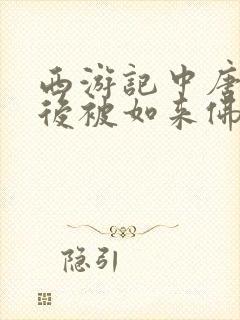 西游記中唐
後被如来佛
隐引